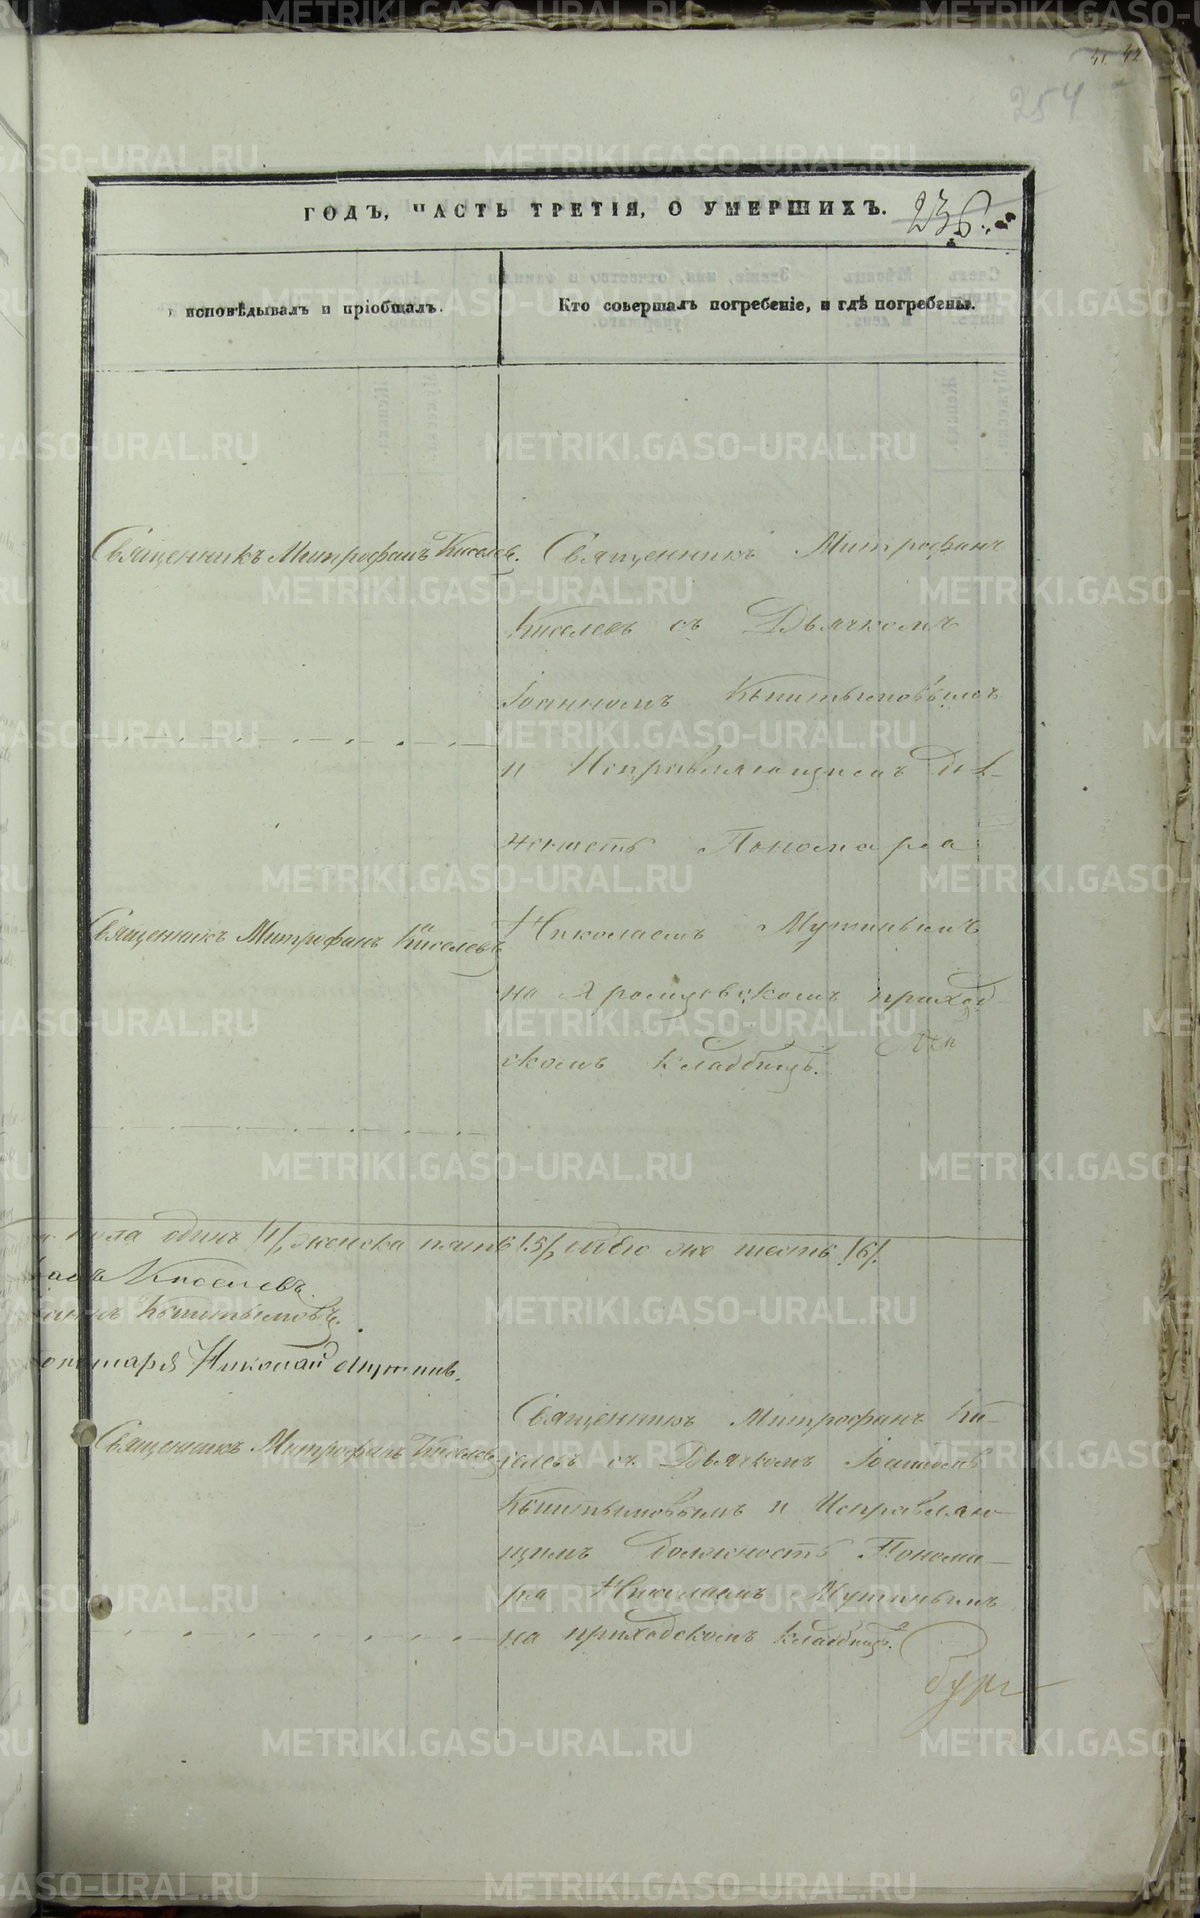 41 42
254
ГОДЪ, ЧАСТЬ ТРЕТІЯ, О УМЕРШИХЪ.
236.
исповѣдывалъ и пріобщалъ.
Кто совершалъ погребеніе, и гдѣ погребены.
Священникъ Митрофанъ Киселевъ.
Священникъ Митрофанъ
Киселевъ съ Дьячкомъ
Іоанномъ Кыштымовымъ
и Исправляющимъ дол-
жность Пономаря
Священникъ Митрофанъ Киселевъ
Николаемъ Мутинымъ
на Яромцовскомъ приход-
скомъ кладбищѣ.
пола одинъ /1/, женска пять /5/, обоо же шесть /6/.
Киселевъ.
Кыштымовъ.
Пономаря Николай Мутинъ.
Священникъ Митрофанъ Киселевъ
Священникъ Митрофанъ Ки-
селевъ съ Дьячкомъ Іоанномъ
Кыштымовымъ и Исправляю-
щимъ должность Понома-
ря Николаемъ Мутинымъ
на приходскомъ кладбищѣ.
METRIKI.GASO-URAL.RU